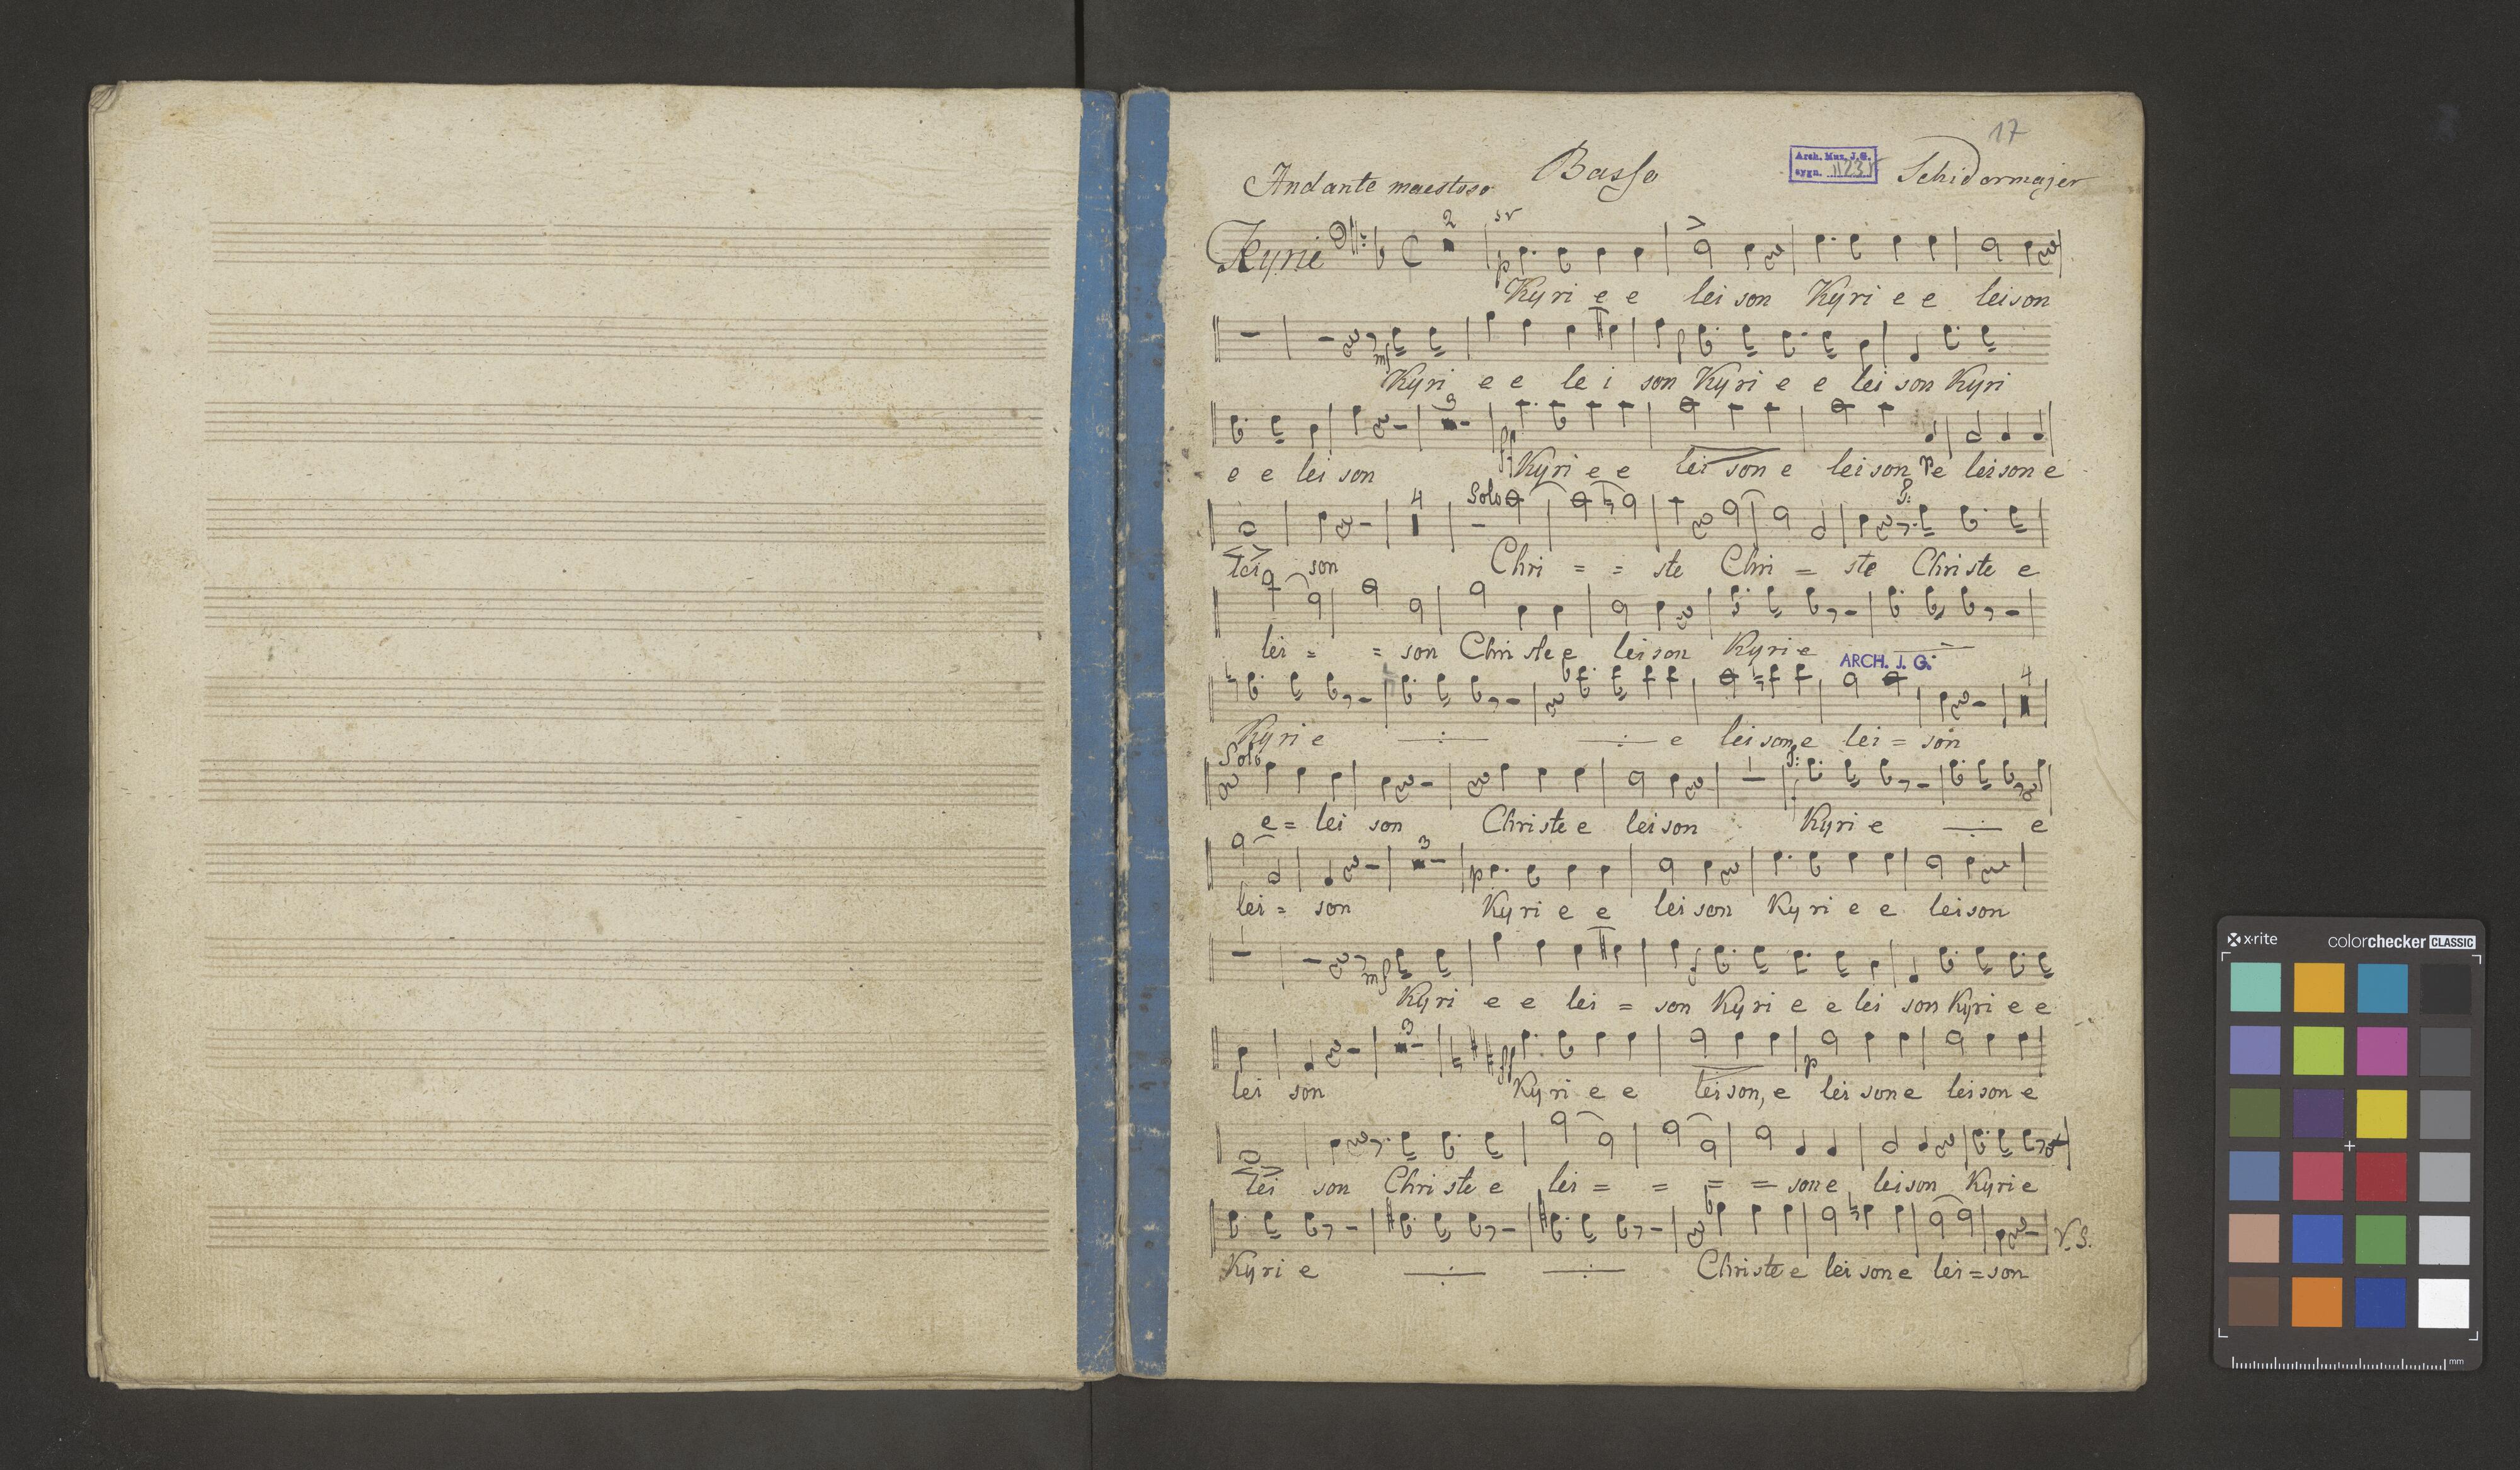 17
Andante maestoso Basso Arch. Muz. J. G. sygn. 1123 Schidermajer
Kyrie 2
p Kyri e e lei son Kyri e e leison
mf
Kyri e e le i son Kyri e e lei son Kyri
3 ff
e e lei son Kyri e e lei son e leison e leison e
4 Solo
lei son Chri = = ste Chri = ste Christe e
lei = = son Christe e leison Kyrie
ARCH. J. G.
4
Kyri e e leison, e lei = son
Solo
e = lei son Christe e leison Kyri e e
3 p
lei = son Kyri e e leison Kyri e e leison
mf
Kyri e e lei = son Kyri e e lei son Kyri e e
3 ff p
lei son Kyri e e leison, e lei son e leison e
lei son Christe e lei = = = = son e leison Kyri e
V. S.
Kyri e Christe e leison e lei = son
x-rite colorchecker CLASSIC
mm